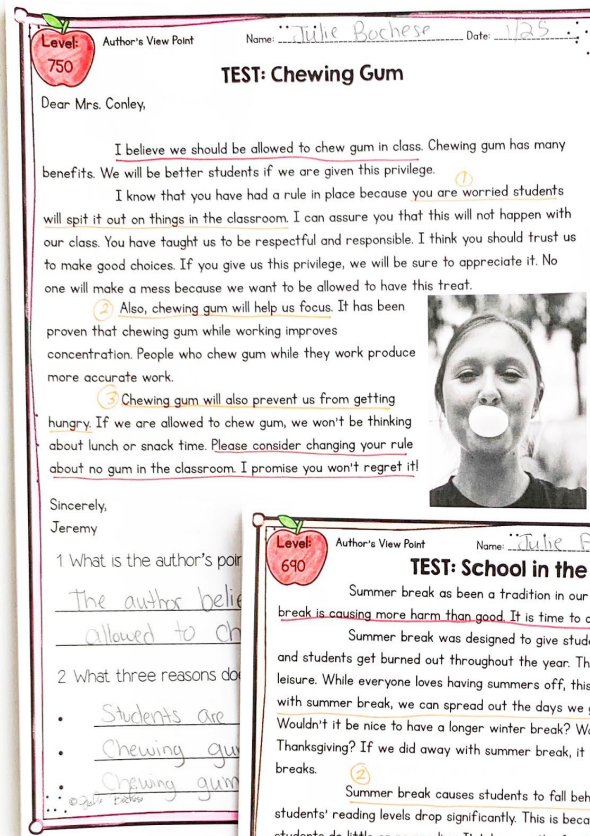 Level:
750
Author's View Point
Name: Julie Bochese Date: 1/25
TEST: Chewing Gum
Dear Mrs. Conley,
I believe we should be allowed to chew gum in class. Chewing gum has many
benefits. We will be better students if we are given this privilege.
1
I know that you have had a rule in place because you are worried students
will spit it out on things in the classroom. I can assure you that this will not happen with
our class. You have taught us to be respectful and responsible. I think you should trust us
to make good choices. If you give us this privilege, we will be sure to appreciate it. No
one will make a mess because we want to be allowed to have this treat.
2 Also, chewing gum will help us focus. It has been
proven that chewing gum while working improves
concentration. People who chew gum while they work produce
more accurate work.
3 Chewing gum will also prevent us from getting
hungry. If we are allowed to chew gum, we won't be thinking
about lunch or snack time. Please consider changing your rule
about no gum in the classroom. I promise you won't regret it!
Sincerely,
Jeremy
1 What is the author's poin
The author belie
allowed to ch
2 What three reasons do
• Students are
• Chewing gu
• Chewing gum
© Julie Bochese
Level:
690
Author's View Point
Name: Julie B
TEST: School in the
Summer break as been a tradition in our
break is causing more harm than good. It is time to
Summer break was designed to give stud
and students get burned out throughout the year. Th
leisure. While everyone loves having summers off, this
with summer break, we can spread out the days we
Wouldn't it be nice to have a longer winter break? W
Thanksgiving? If we did away with summer break, it
breaks.
2
Summer break causes students to fall beh
students' reading levels drop significantly. This is beca